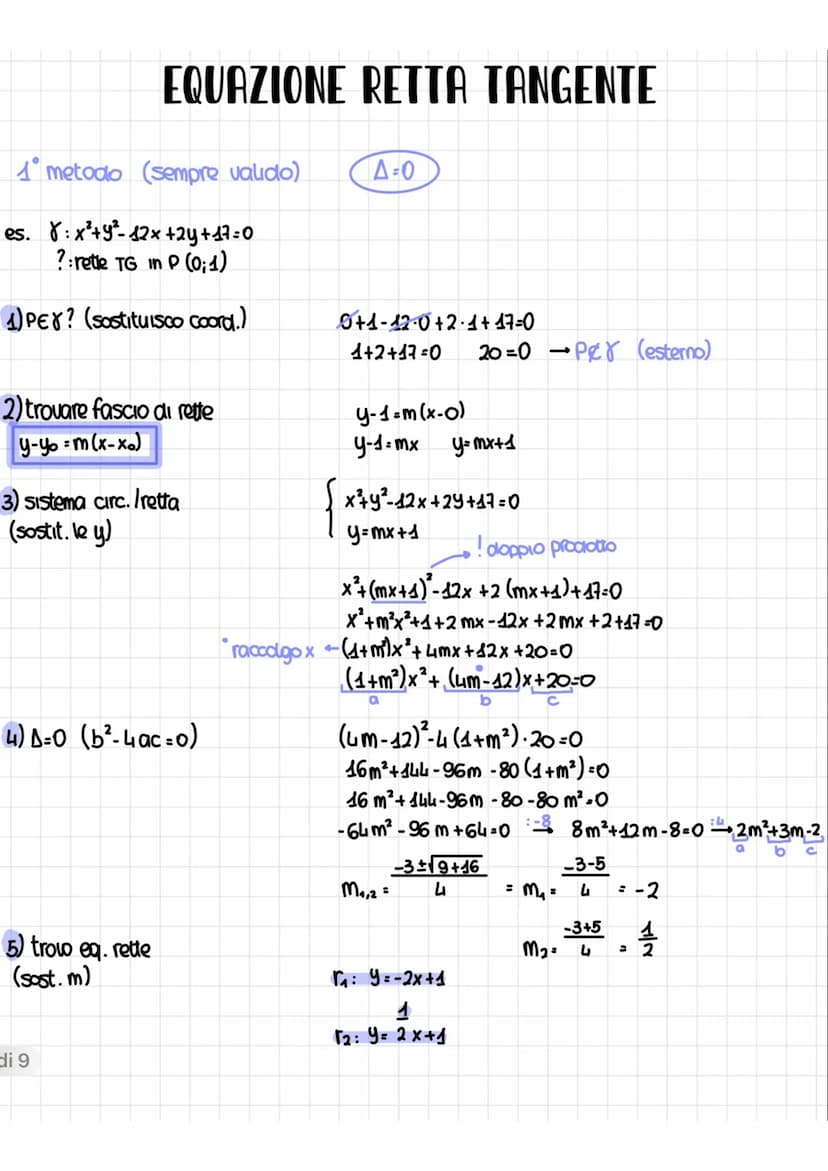 EQUAZIONE RETTA TANGENTE
1° metodo (sempre valido) Δ=0
es. γ: x²+y²-12x+2y+17=0
?: rette TG in P (0;1)
1) P∈γ? (sostituisco coord.) 0+1-12·0+2·1+17=0
1+2+17=0 20=0 → P∉γ (esterno)
2) trovare fascio di rette y-1=m(x-0)
y-y₀=m(x-x₀) y-1=mx y=mx+1
3) sistema circ./retta { x²+y²-12x+2y+17=0
(sostit. le y) y=mx+1
! doppio prodotto
x²+(mx+1)²-12x+2(mx+1)+17=0
x²+m²x²+1+2mx-12x+2mx+2+17=0
*raccolgo x ← (1+m²)x²+4mx+12x+20=0
(1+m²)x²+(4m-12)x+20=0
a b c
4) Δ=0 (b²-4ac=0) (4m-12)²-4(1+m²)·20=0
16m²+144-96m-80(1+m²)=0
16m²+144-96m-80-80m²=0
-64m²-96m+64=0 :-8→ 8m²+12m-8=0 :4→ 2m²+3m-2
a b c
m₁,₂ = -3±√9+16/4 = m₁ = -3-5/4 = -2
m₂ = -3+5/4 = 1/2
5) trovo eq. rette
(sost. m) r₁: y=-2x+1
r₂: y=1/2 x+1
di 9